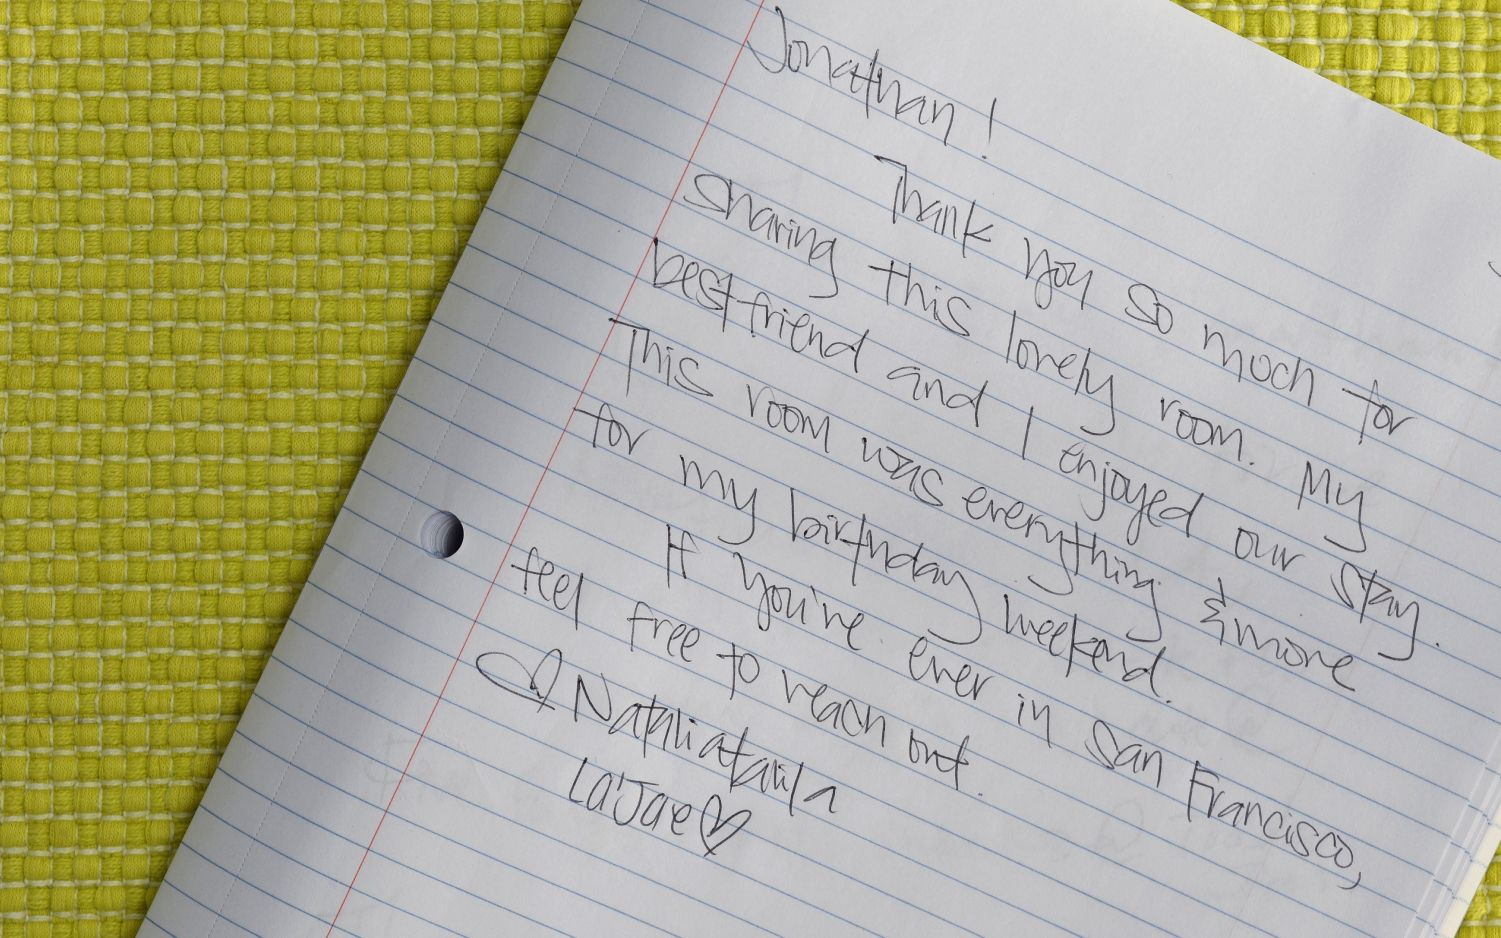 Jonathan!
Thank you so much for
sharing this lovely room. My
best friend and I enjoyed our stay.
This room was everything & more
for my birthday weekend.
If you're ever in San Francisco,
feel free to reach out.
La'Jae